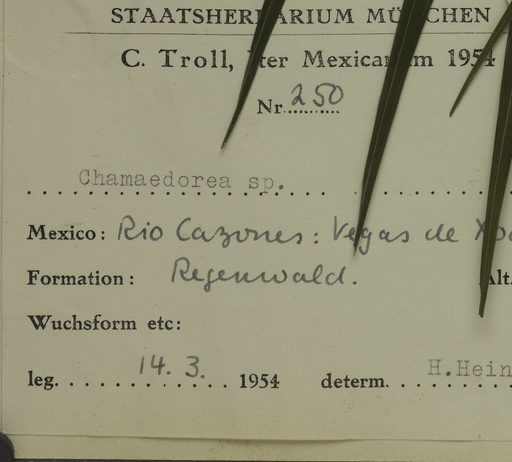 STAATSHERBARIUM MÜNCHEN
C. Troll, Iter Mexicanum 1954
Nr. 250
Chamaedorea sp.
Mexico: Rio Cazones: Vegas de
Formation: Regenwald. Alt.
Wuchsform etc:
leg. 14. 3. 1954 determ. H. Hein